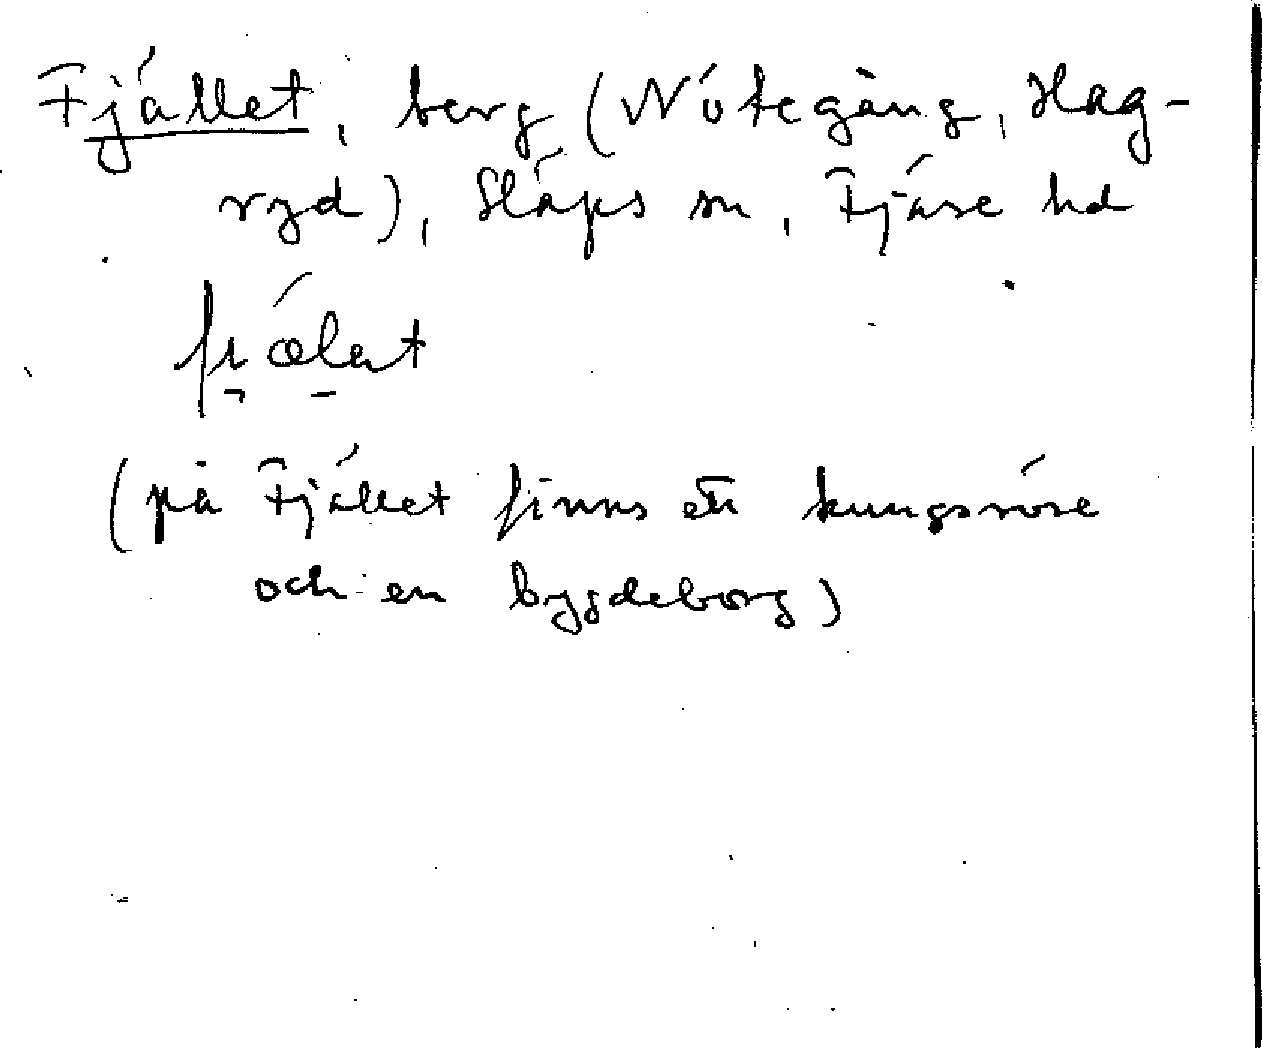 Fjället, berg (Nötegång, Hag-
ryd), Släps sn, Fjäre hd
(på Fjället finns ett kungsröse
och en bygdeborg)